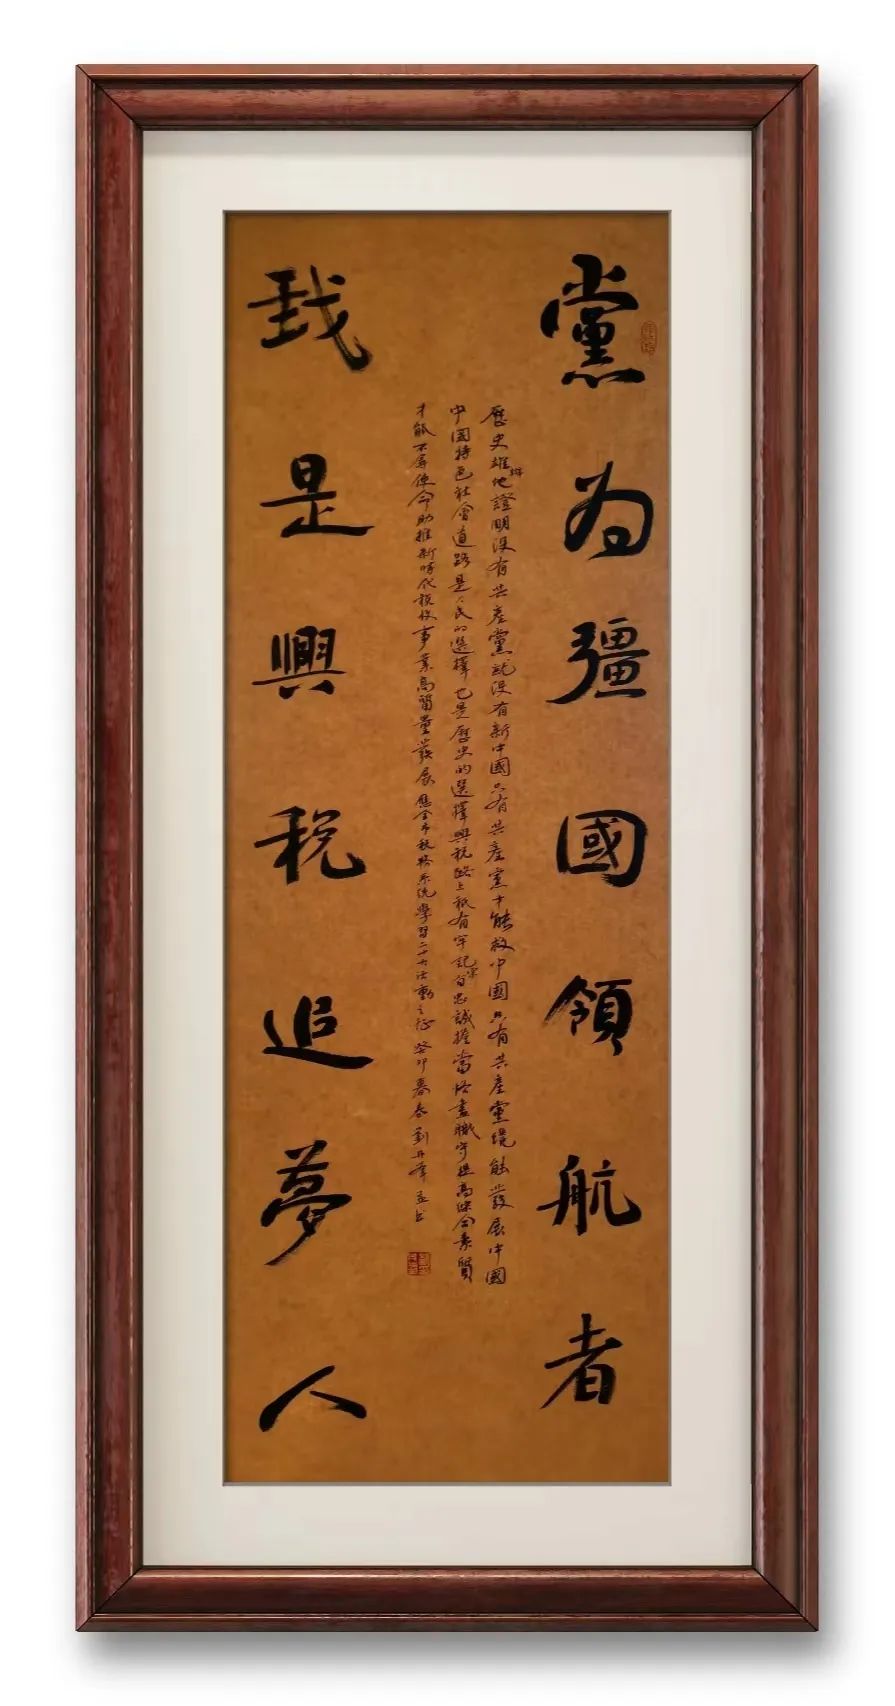 黨為疆國領航者
歷史雄辯地證明沒有共產黨就沒有新中國只有共產黨才能救中國只有共產黨纔能發展中國
中國特色社會道路是人民的選擇也是歷史的選擇興稅路上祇有牢記宗旨忠誠擔當恪盡職守提高綜合素質
才能不辱使命助推新時代稅收事業高質量發展應全市稅務系統學習二十大活動之征癸卯暮春劉丹峰並書
我是興稅追夢人